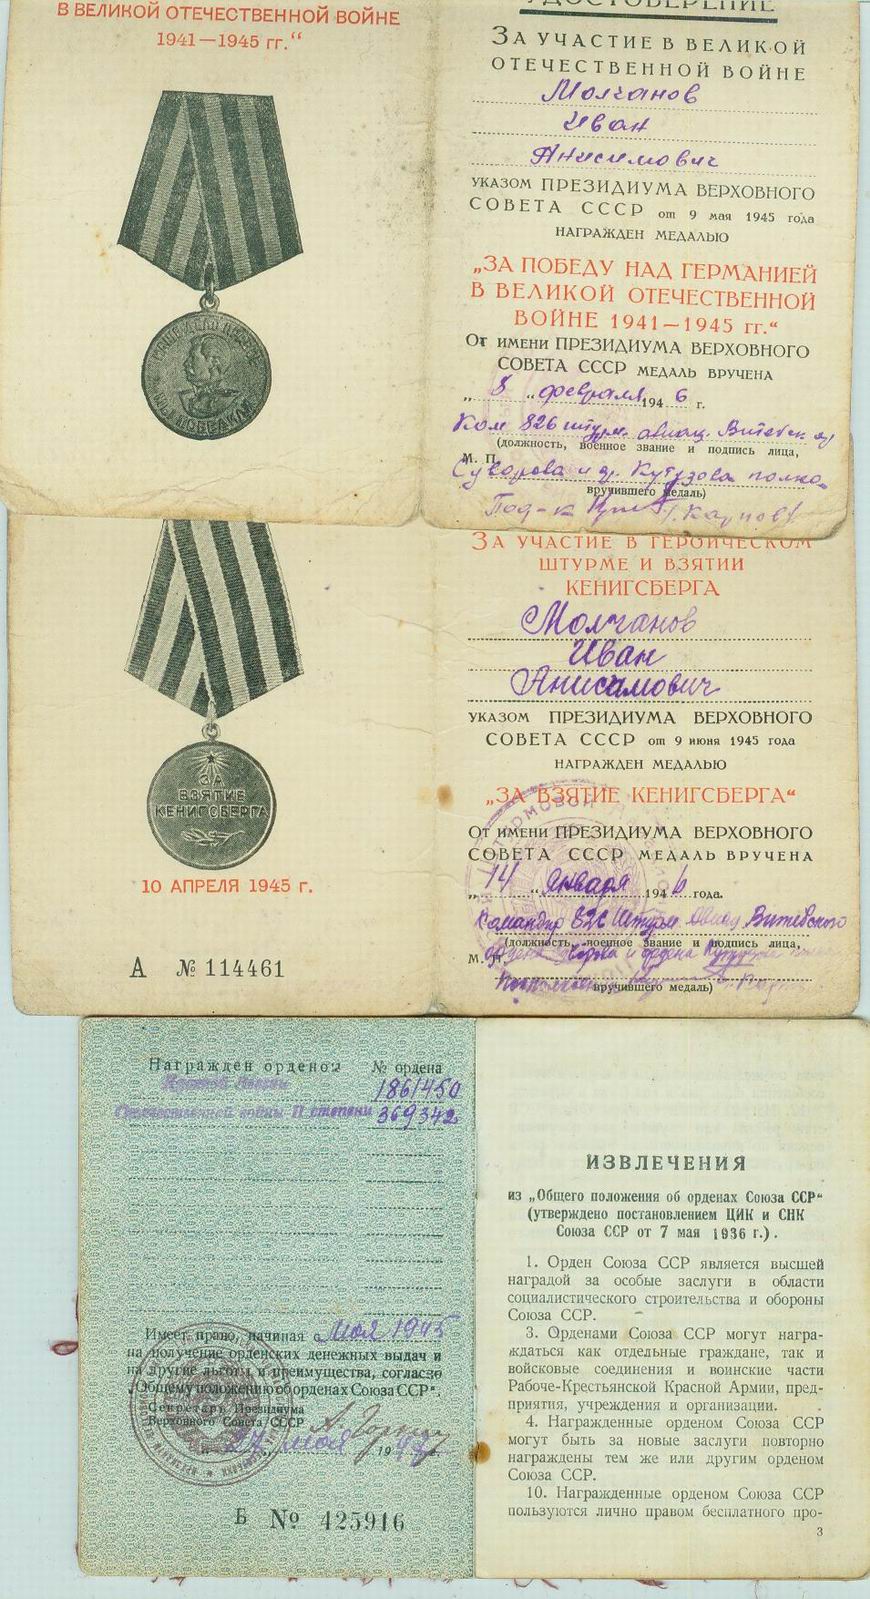 В ВЕЛИКОЙ ОТЕЧЕСТВЕННОЙ ВОЙНЕ
1941—1945 гг."
НАШЕ ДЕЛО ПРАВОЕ
МЫ ПОБЕДИЛИ
УДОСТОВЕРЕНИЕ
ЗА УЧАСТИЕ В ВЕЛИКОЙ
ОТЕЧЕСТВЕННОЙ ВОЙНЕ
Молчанов
Иван
Анисимович
УКАЗОМ ПРЕЗИДИУМА ВЕРХОВНОГО
СОВЕТА СССР от 9 мая 1945 года
НАГРАЖДЕН МЕДАЛЬЮ
„ЗА ПОБЕДУ НАД ГЕРМАНИЕЙ
В ВЕЛИКОЙ ОТЕЧЕСТВЕННОЙ
ВОЙНЕ 1941—1945 гг."
От имени ПРЕЗИДИУМА ВЕРХОВНОГО
СОВЕТА СССР МЕДАЛЬ ВРУЧЕНА
„ 8 " февраля 1946 г.
Ком. 826 штурм. авиац. Витебск.
(должность, военное звание и подпись лица,
М. П.
Суворова и Кутузова полка
вручившего медаль)
Под-к
ЗА УЧАСТИЕ В ГЕРОИЧЕСКОМ
ШТУРМЕ И ВЗЯТИИ
КЕНИГСБЕРГА
Молчанов
Иван
Анисимович
УКАЗОМ ПРЕЗИДИУМА ВЕРХОВНОГО
СОВЕТА СССР от 9 июня 1945 года
НАГРАЖДЕН МЕДАЛЬЮ
„ЗА ВЗЯТИЕ КЕНИГСБЕРГА"
От имени ПРЕЗИДИУМА ВЕРХОВНОГО
СОВЕТА СССР МЕДАЛЬ ВРУЧЕНА
„ 14 " января 1946 года.
Командир 826 Штурм. Авиац Витебского
(должность, военное звание и подпись лица,
М. П.
ордена и ордена
вручившего медаль)
ЗА
ВЗЯТИЕ
КЕНИГСБЕРГА
10 АПРЕЛЯ 1945 г.
А № 114461
Награжден орденом № ордена
Красной Звезды 1861450
Отечественной войны II степени 369342
Имеет право, начиная с Мая 1945
на получение орденских денежных выдач и
на другие льготы и преимущества, согласно
„Общему положению об орденах Союза ССР".
Секретарь Президиума
Верховного Совета СССР
27 мая 194
Б № 425916
ИЗВЛЕЧЕНИЯ
из „Общего положения об орденах Союза ССР"
(утверждено постановлением ЦИК и СНК
Союза ССР от 7 мая 1936 г.).
1. Орден Союза ССР является высшей
наградой за особые заслуги в области
социалистического строительства и обороны
Союза ССР.
3. Орденами Союза ССР могут награ-
ждаться как отдельные граждане, так и
войсковые соединения и воинские части
Рабоче-Крестьянской Красной Армии, пред-
приятия, учреждения и организации.
4. Награжденные орденом Союза ССР
могут быть за новые заслуги повторно
награждены тем же или другим орденом
Союза ССР.
10. Награжденные орденом Союза ССР
пользуются лично правом бесплатного про-
3